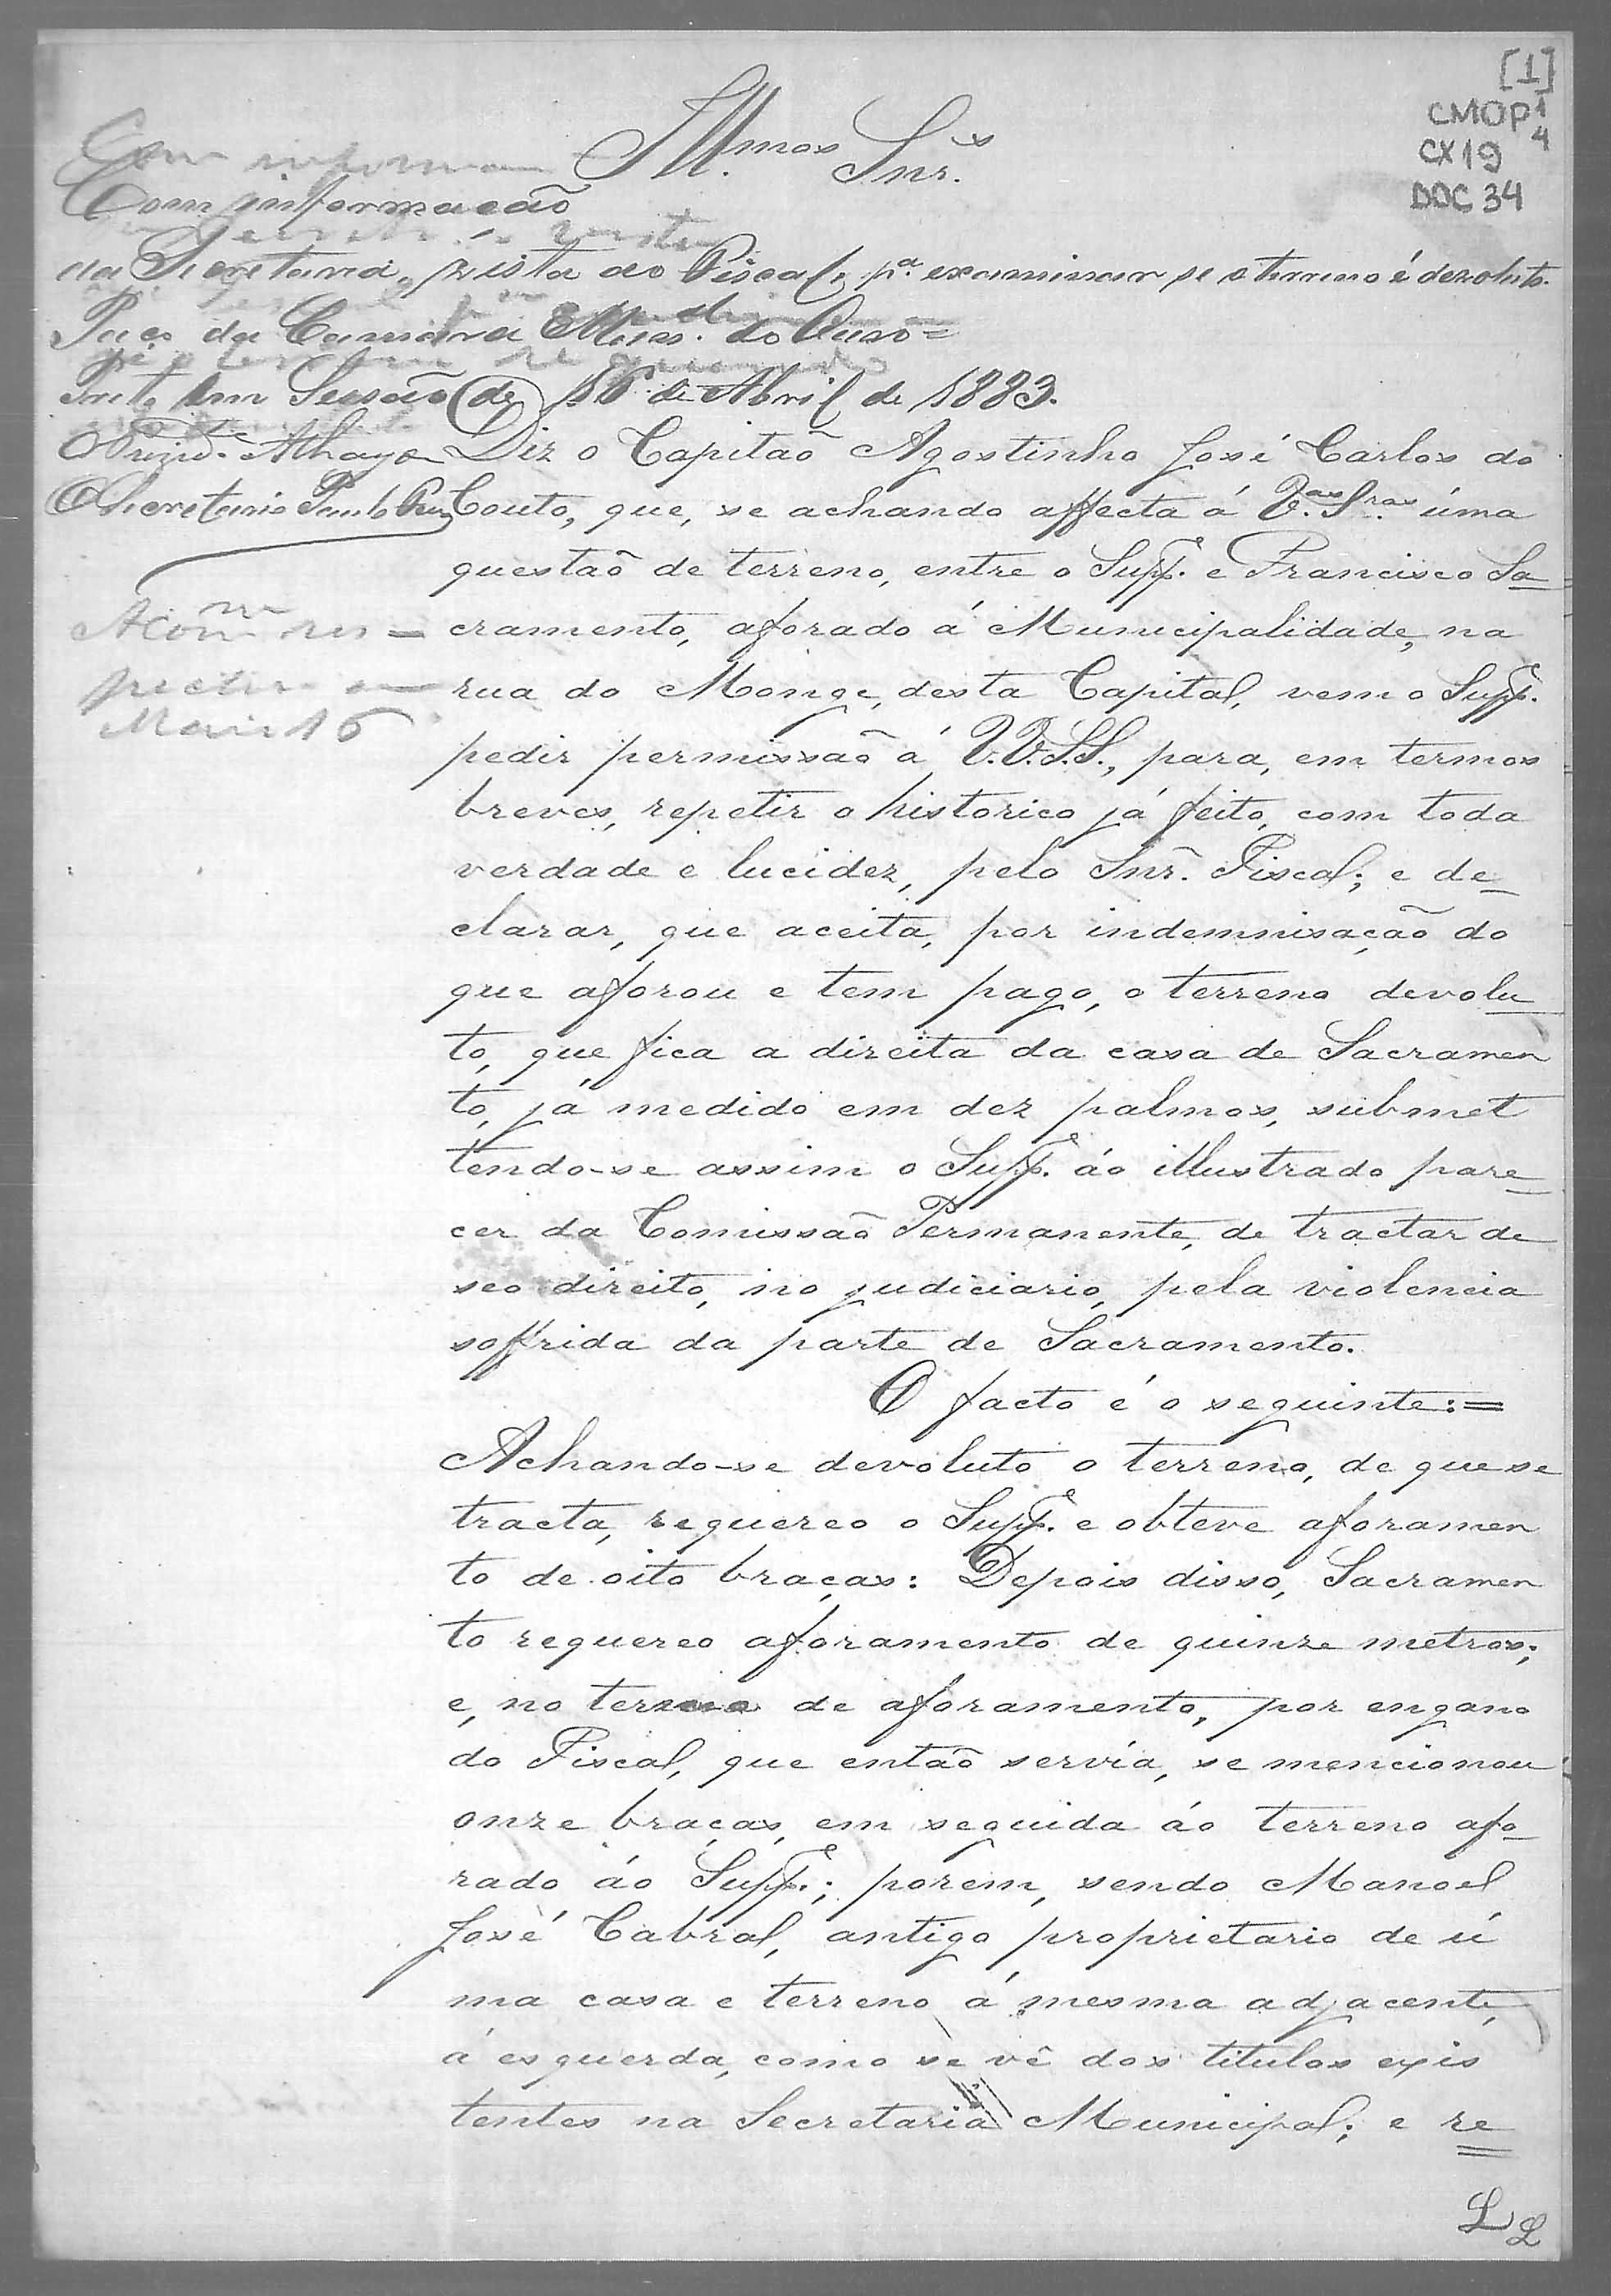 [1]
CMOP 1
4
CX 19
DOC 34
Illmos Snrs.
Com informação
da Secretaria, vista ao Fiscal, pa. examinar se o terreno é devoluto.
Paço da Camara Mun. do Ouro =
Preto em Sessão de 16 de Abril de 1883.
O Prezid.te Athayde
O Secretario Paulo
A Com
Maio 16
Diz o Capitaõ Agostinho José Carlos do
Couto, que, se achando affecta á V.as S.ras úma
questaõ de terreno, entre o Supp.e e Francisco Sa
cramento, aforado á Municipalidade, na
rua do Monge, desta Capital, vem o Supp.e
pedir permissaõ á V.V.S.S., para, em termos
breves, repetir o historico já feito, com toda
verdade e lucidez, pelo Snr. Fiscal; e de_
clarar, que aceita, por indemnisação do
que aforou e tem pago, o terreno devolu_
to, que fica a direita da casa de Sacramen
to, já medido em dez palmos, submet
tendo-se assim o Supp.e áo illustrado pare_
cer da Comissaõ Permanente, de tractar de
seo direito, no judiciario, pela violencia
soffrida da parte de Sacramento.
O facto é o seguinte:=
Achando-se devoluto o terreno, de que se
tracta, requereo o Supp.e e obteve aforamen
to de oito braças: Depois disso, Sacramen
to requereo aforamento de quinze metros;
e, no termo de aforamento, por engano
do Fiscal, que entaõ servia, se mencionou
onze braças, em seguida áo terreno afo_
rado áo Supp.e; porem, sendo Manoel
José Cabral, antigo proprietario de ú
ma casa e terreno á mesma adjacente,
á esquerda, como se vê dos titulos exis
tentes na Secretaria Municipal; e re